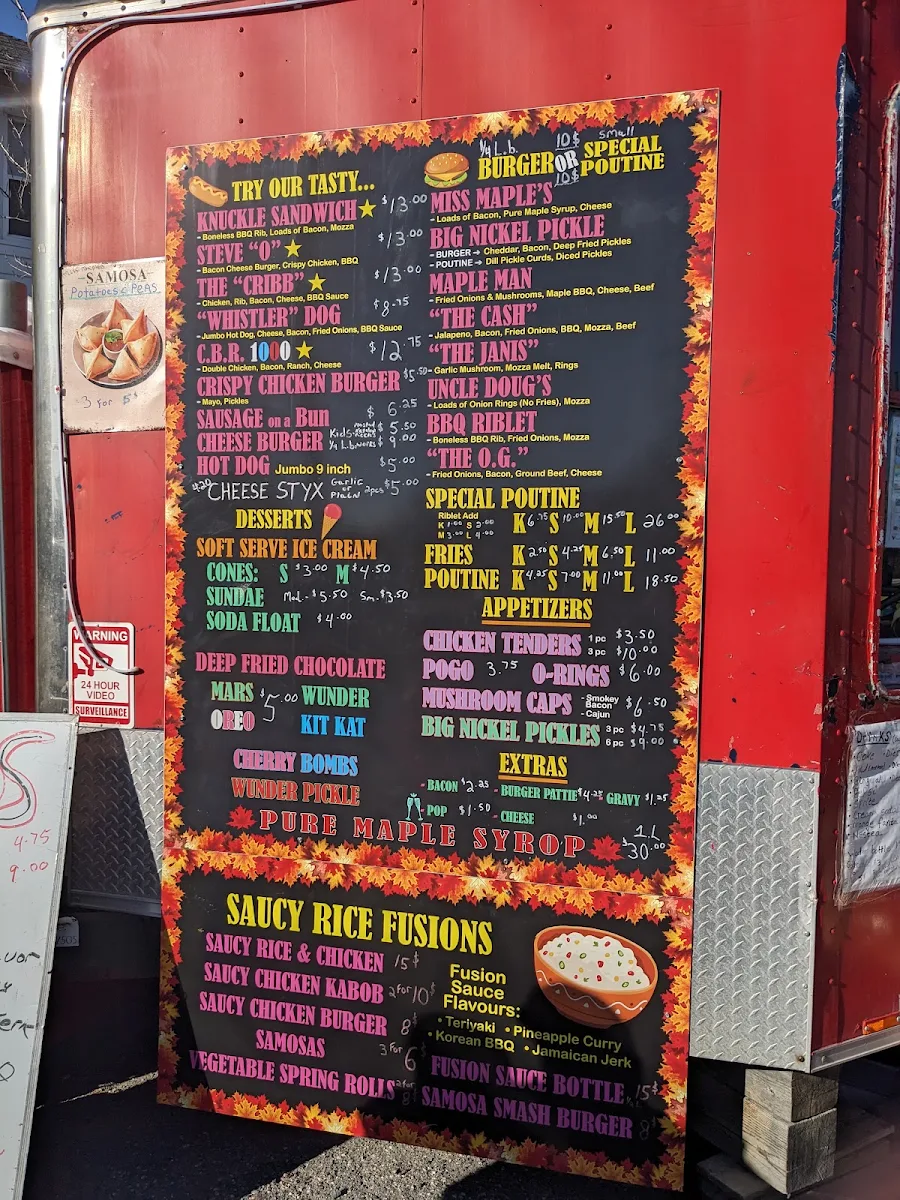 TRY OUR TASTY...
KNUCKLE SANDWICH $13.00
- Boneless BBQ Rib, Loads of Bacon, Mozza
STEVE "O" $13.00
- Bacon Cheese Burger, Crispy Chicken, BBQ
THE "CRIBB" $13.00
- Chicken, Rib, Bacon, Cheese, BBQ Sauce
"WHISTLER" DOG $8.75
- Jumbo Hot Dog, Cheese, Bacon, Fried Onions, BBQ Sauce
C.B.R. 1000 $12.75
- Double Chicken, Bacon, Ranch, Cheese
CRISPY CHICKEN BURGER $5.50
- Mayo, Pickles
SAUSAGE on a Bun $6.25
CHEESE BURGER Kids $5.50
1/4 L.b. works $9.00
HOT DOG Jumbo 9 inch $5.00
CHEESE STYX Garlic or Plain 2pcs $5.00
DESSERTS
SOFT SERVE ICE CREAM
CONES: S $3.00 M $4.50
SUNDAE Med.- $5.50 Sm.- $3.50
SODA FLOAT $4.00
DEEP FRIED CHOCOLATE
MARS $5.00 WUNDER
OREO KIT KAT
CHERRY BOMBS
WUNDER PICKLE
1/4 L.b. 10$ small
BURGER OR SPECIAL POUTINE
10$
MISS MAPLE'S
- Loads of Bacon, Pure Maple Syrup, Cheese
BIG NICKEL PICKLE
- BURGER → Cheddar, Bacon, Deep Fried Pickles
- POUTINE → Dill Pickle Curds, Diced Pickles
MAPLE MAN
- Fried Onions & Mushrooms, Maple BBQ, Cheese, Beef
"THE CASH"
- Jalapeno, Bacon, Fried Onions, BBQ, Mozza, Beef
"THE JANIS"
- Garlic Mushroom, Mozza Melt, Rings
UNCLE DOUG'S
- Loads of Onion Rings (No Fries), Mozza
BBQ RIBLET
- Boneless BBQ Rib, Fried Onions, Mozza
"THE O.G."
- Fried Onions, Bacon, Ground Beef, Cheese
SPECIAL POUTINE
Riblet Add
K 1.00 S 2.00
M 3.00 L 4.00
K 6.75 S 10.00 M 15.50 L 26.00
FRIES K 2.50 S 4.25 M 6.50 L 11.00
POUTINE K 4.25 S 7.00 M 11.00 L 18.50
APPETIZERS
CHICKEN TENDERS 1 pc $3.50
3 pc $10.00
POGO 3.75 O-RINGS $6.00
MUSHROOM CAPS - Smokey Bacon - Cajun $6.50
BIG NICKEL PICKLES 3 pc $4.75
6 pc $9.00
EXTRAS
- BACON $2.25 - BURGER PATTIE $4.25 GRAVY $1.25
- POP $1.50 - CHEESE $1.00
PURE MAPLE SYROP 1L $30.00
SAUCY RICE FUSIONS
SAUCY RICE & CHICKEN 15$
SAUCY CHICKEN KABOB 2 for 10$
SAUCY CHICKEN BURGER 8$
SAMOSAS 3 For 6$
VEGETABLE SPRING ROLLS 2 for 8$
Fusion
Sauce
Flavours:
• Teriyaki • Pineapple Curry
• Korean BBQ • Jamaican Jerk
FUSION SAUCE BOTTLE 15$
SAMOSA SMASH BURGER 8$
-SAMOSA-
Potatoes & PEAS
3 For 5$
WARNING
24 HOUR
VIDEO
SURVEILLANCE
S
4.75
9.00